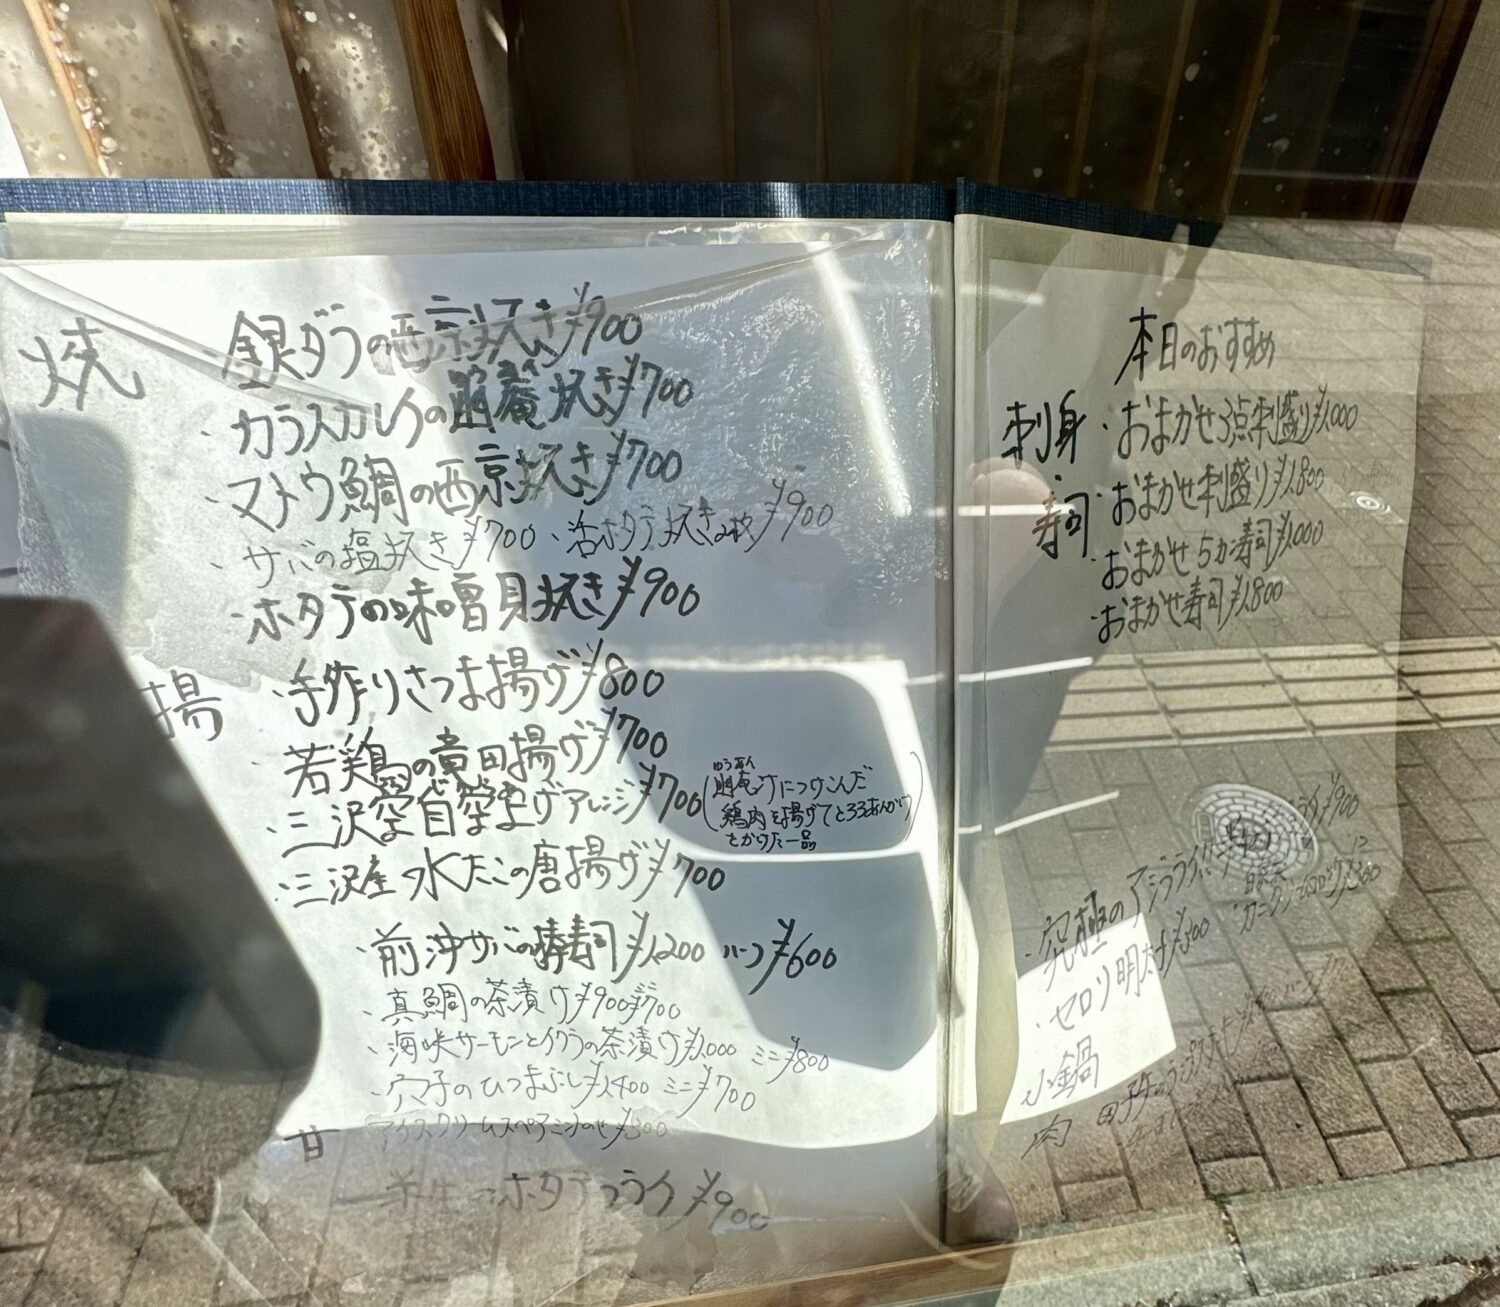 焼
・銀ダラの西京焼き¥900
・カラスカレイの幽庵焼き¥700
・マトウ鯛の西京焼き¥700
・サバの塩焼き¥700 ・活ホタテ焼き2枚¥900
・ホタテの味噌貝焼き¥900
揚
・手作りさつま揚げ¥800
・若鶏の竜田揚げ¥700
・三沢空自空上げアレンジ¥700
ゆうあん
(幽庵
につけこんだ
鶏肉を揚げてとろろあんかけ
をかけた一品)
・三沢産 水だこの唐揚げ¥700
・前沖サバの棒寿司¥1,200 ハーフ¥600
・真鯛の茶漬け¥900 ミニ¥700
・海峡サーモンとイクラの茶漬け¥1,000 ミニ¥800
・穴子のひつまぶし¥1,400 ミニ¥700
甘
¥300
ホタテフライ¥900
本日のおすすめ
刺身・寿司
・おまかせ3点刺盛り¥1,000
・おまかせ刺盛り¥1,800
・おまかせ5カン寿司¥1,000
・おまかせ寿司¥1,800
・究極のアジフライ
¥900
・セロリ明太¥300
小鍋
肉